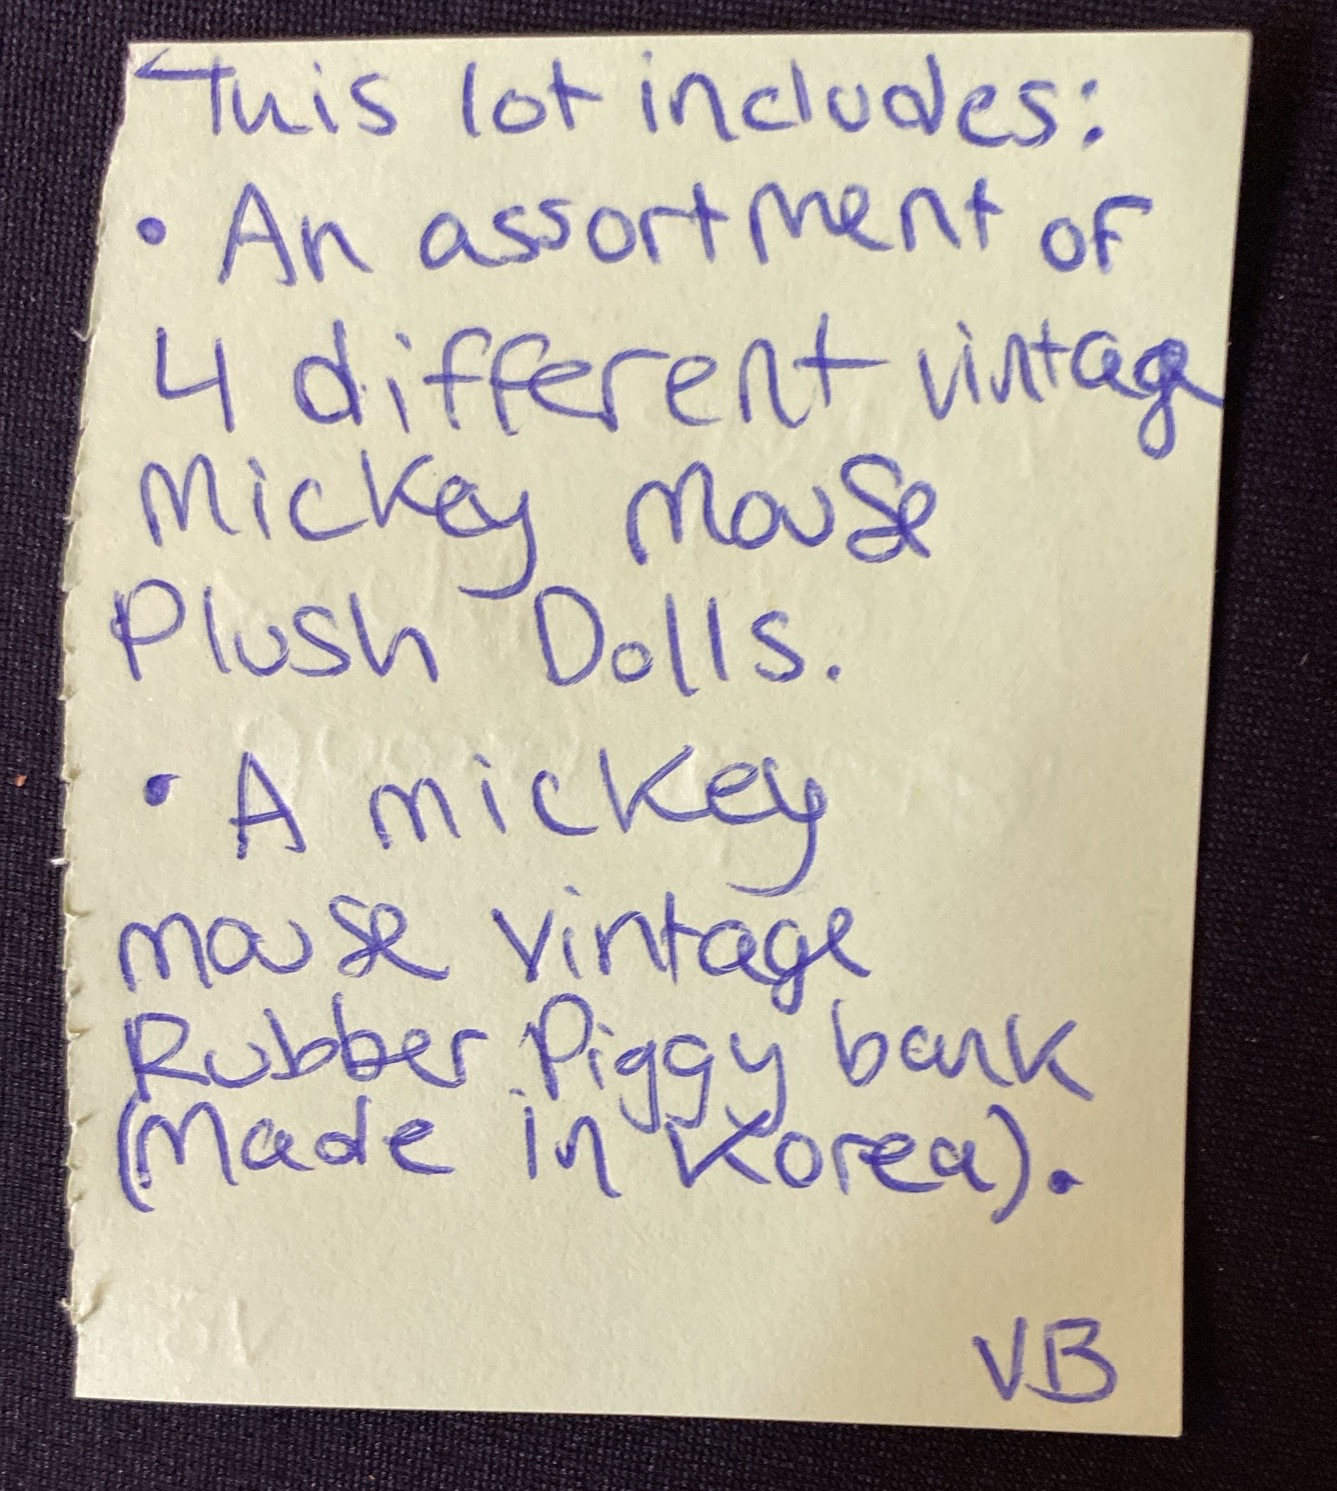 This lot includes:
• An assortment of
4 different vintage
Mickey Mouse
Plush Dolls.
• A mickey
mouse vintage
Rubber Piggy bank
(Made in Korea).
VB